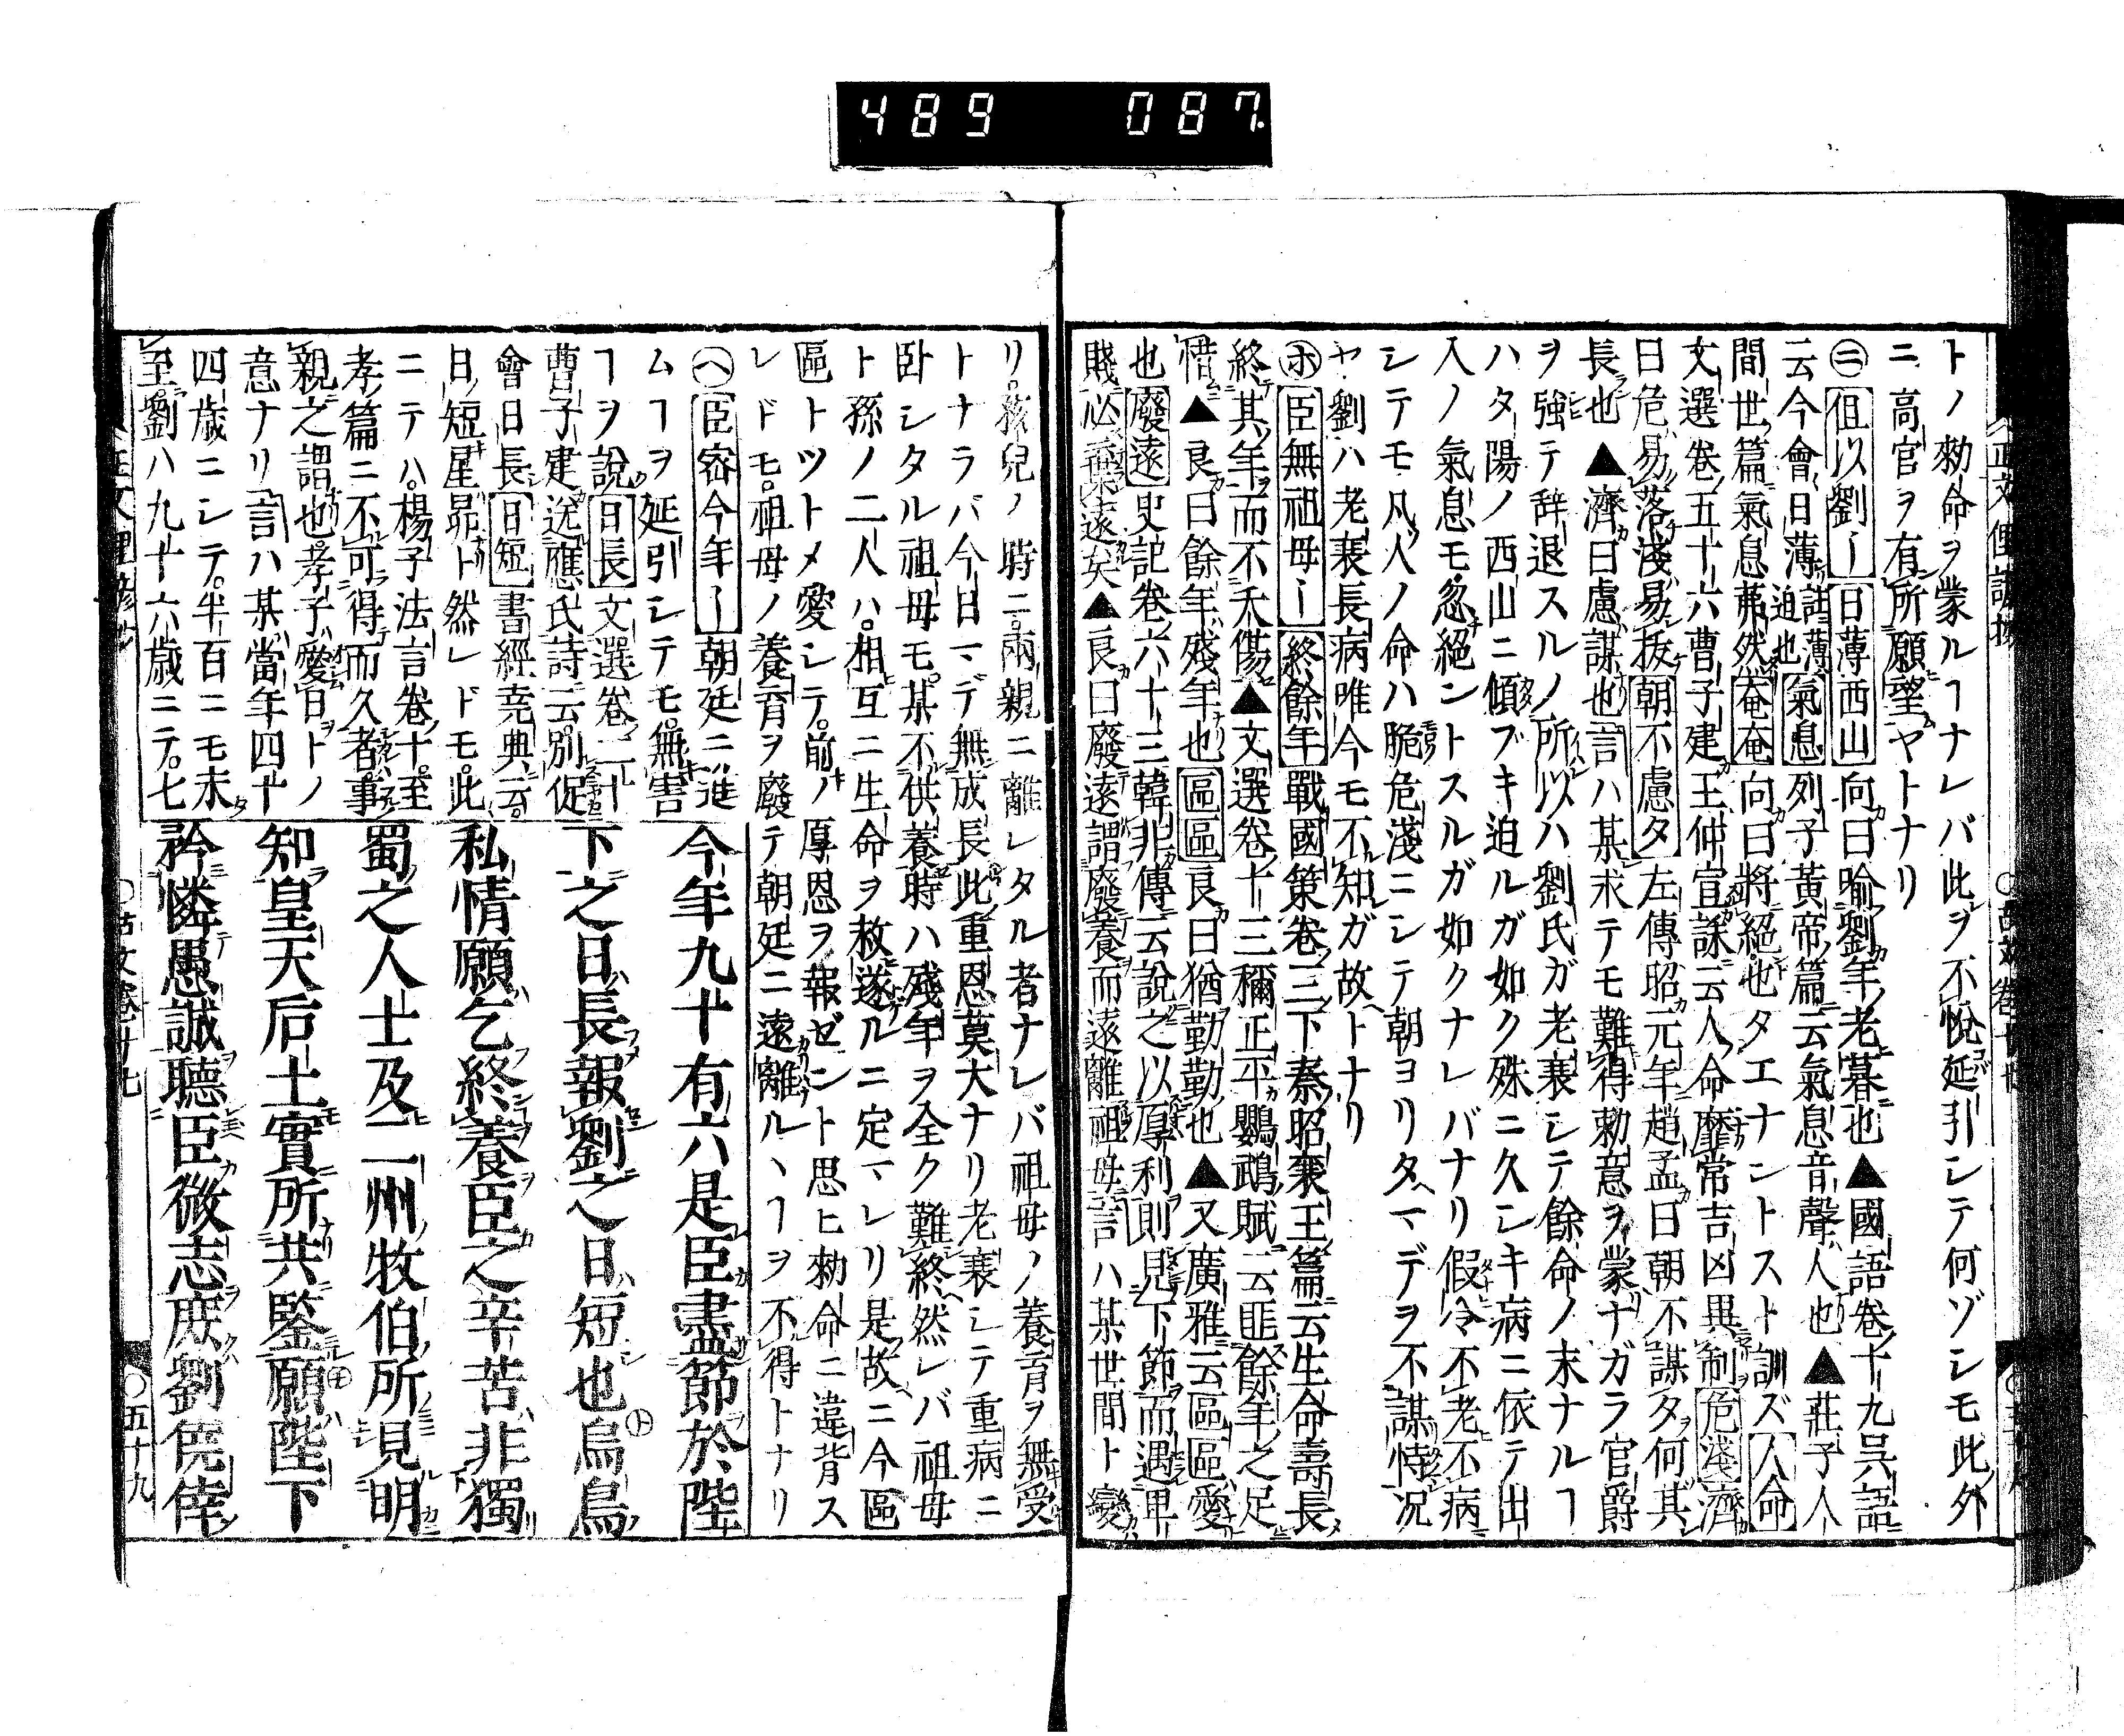 489 087
トノ勑命ヲ蒙ルヿナレバ此ヲ不悅延引シテ何ゾシモ此外
ニ高官ヲ有所願望ヤトナリ
㊁但以劉〡日薄西山向曰喻劉年老暮也▲國語卷十九吳語
云今會日薄註薄迫也氣息列子黃帝篇云氣息音聲人也▲莊子人
間世篇氣息茀然奄奄向曰將絕也タエナントスト訓ズ人命
文選卷五十六曹子建王仲宣誄云人命靡常吉凶異制危淺濟
曰危易落淺易拔朝不慮夕左傳昭元年趙孟曰朝不謀夕何其
長也▲濟曰慮謀也言ハ某求テモ難得勅意ヲ蒙ナガラ官爵
ヲ強テ辞退スルノ所以ハ劉氏ガ老衰シテ餘命ノ末ナルヿ
ハタ陽ノ西山ニ傾ブキ迫ルガ如ク殊ニ久シキ病ニ依テ出
入ノ氣息モ忽絕ントスルガ如クナレバナリ假令不老不病
シテモ凡人ノ命ハ脆危淺ニシテ朝ヨリタヘマデヲ不謀恃况
ヤ劉ハ老衰長病唯今モ不知ガ故トナリ
㋭臣無祖母〡終餘年戰國策卷三下秦昭襄王篇云生命壽長
終其年而不夭傷▲文選卷十三禰正平鸚鵡賦云匪餘年之足
惜▲良曰餘年殘年也區區良曰猶勤勤也▲又廣雅云區區愛
也廢遠史記卷六十三韓非傳云說之以厚利則見下節而遇卑
賤必棄遠矣▲良曰廢遠謂廢養而遠離祖母言ハ某世間ト變
リ孩兒ノ時ニ兩親ニ離レタル者ナレバ祖母ノ養育ヲ無受
トナラバ今日マデ無成長此重恩莫大ナリ老衰シテ重病ニ
卧シタル祖母モ某不供養時ハ殘年ヲ全ク難終然レバ祖母
ト孫ノ二人ハ相互ニ生命ヲ救遂ルニ定マレリ是故ニ今區
區トツトメ愛シテ前ノ厚恩ヲ報ゼント思ヒ勑命ニ違背ス
レドモ祖母ノ養育ヲ廢テ朝廷ニ遠離ルヽヿヲ不得トナリ
㋬臣密今年〡朝廷ニ進
ムヿヲ延引シテモ無害
ヿヲ說日長文選卷二十
曹子建送應氏詩云別促
會日長日短書經堯典云
日短星昴ト然レドモ此
ニテハ楊子法言卷十至
孝篇ニ不可得而久者事
親之謂也孝子愛日トノ
意ナリ言ハ某當年四十
四歳ニシテ半百ニモ未
至劉ハ九十六歳ニテ七
今年九十有六是臣盡節於陛
下之日長報劉之日短也烏鳥
私情願乞終養臣之辛苦非獨
蜀之人士及二州牧伯所見明
知皇天后土實所共鑒願陛下
矜憐愚誠聽臣微志庶劉僥倖
五十九